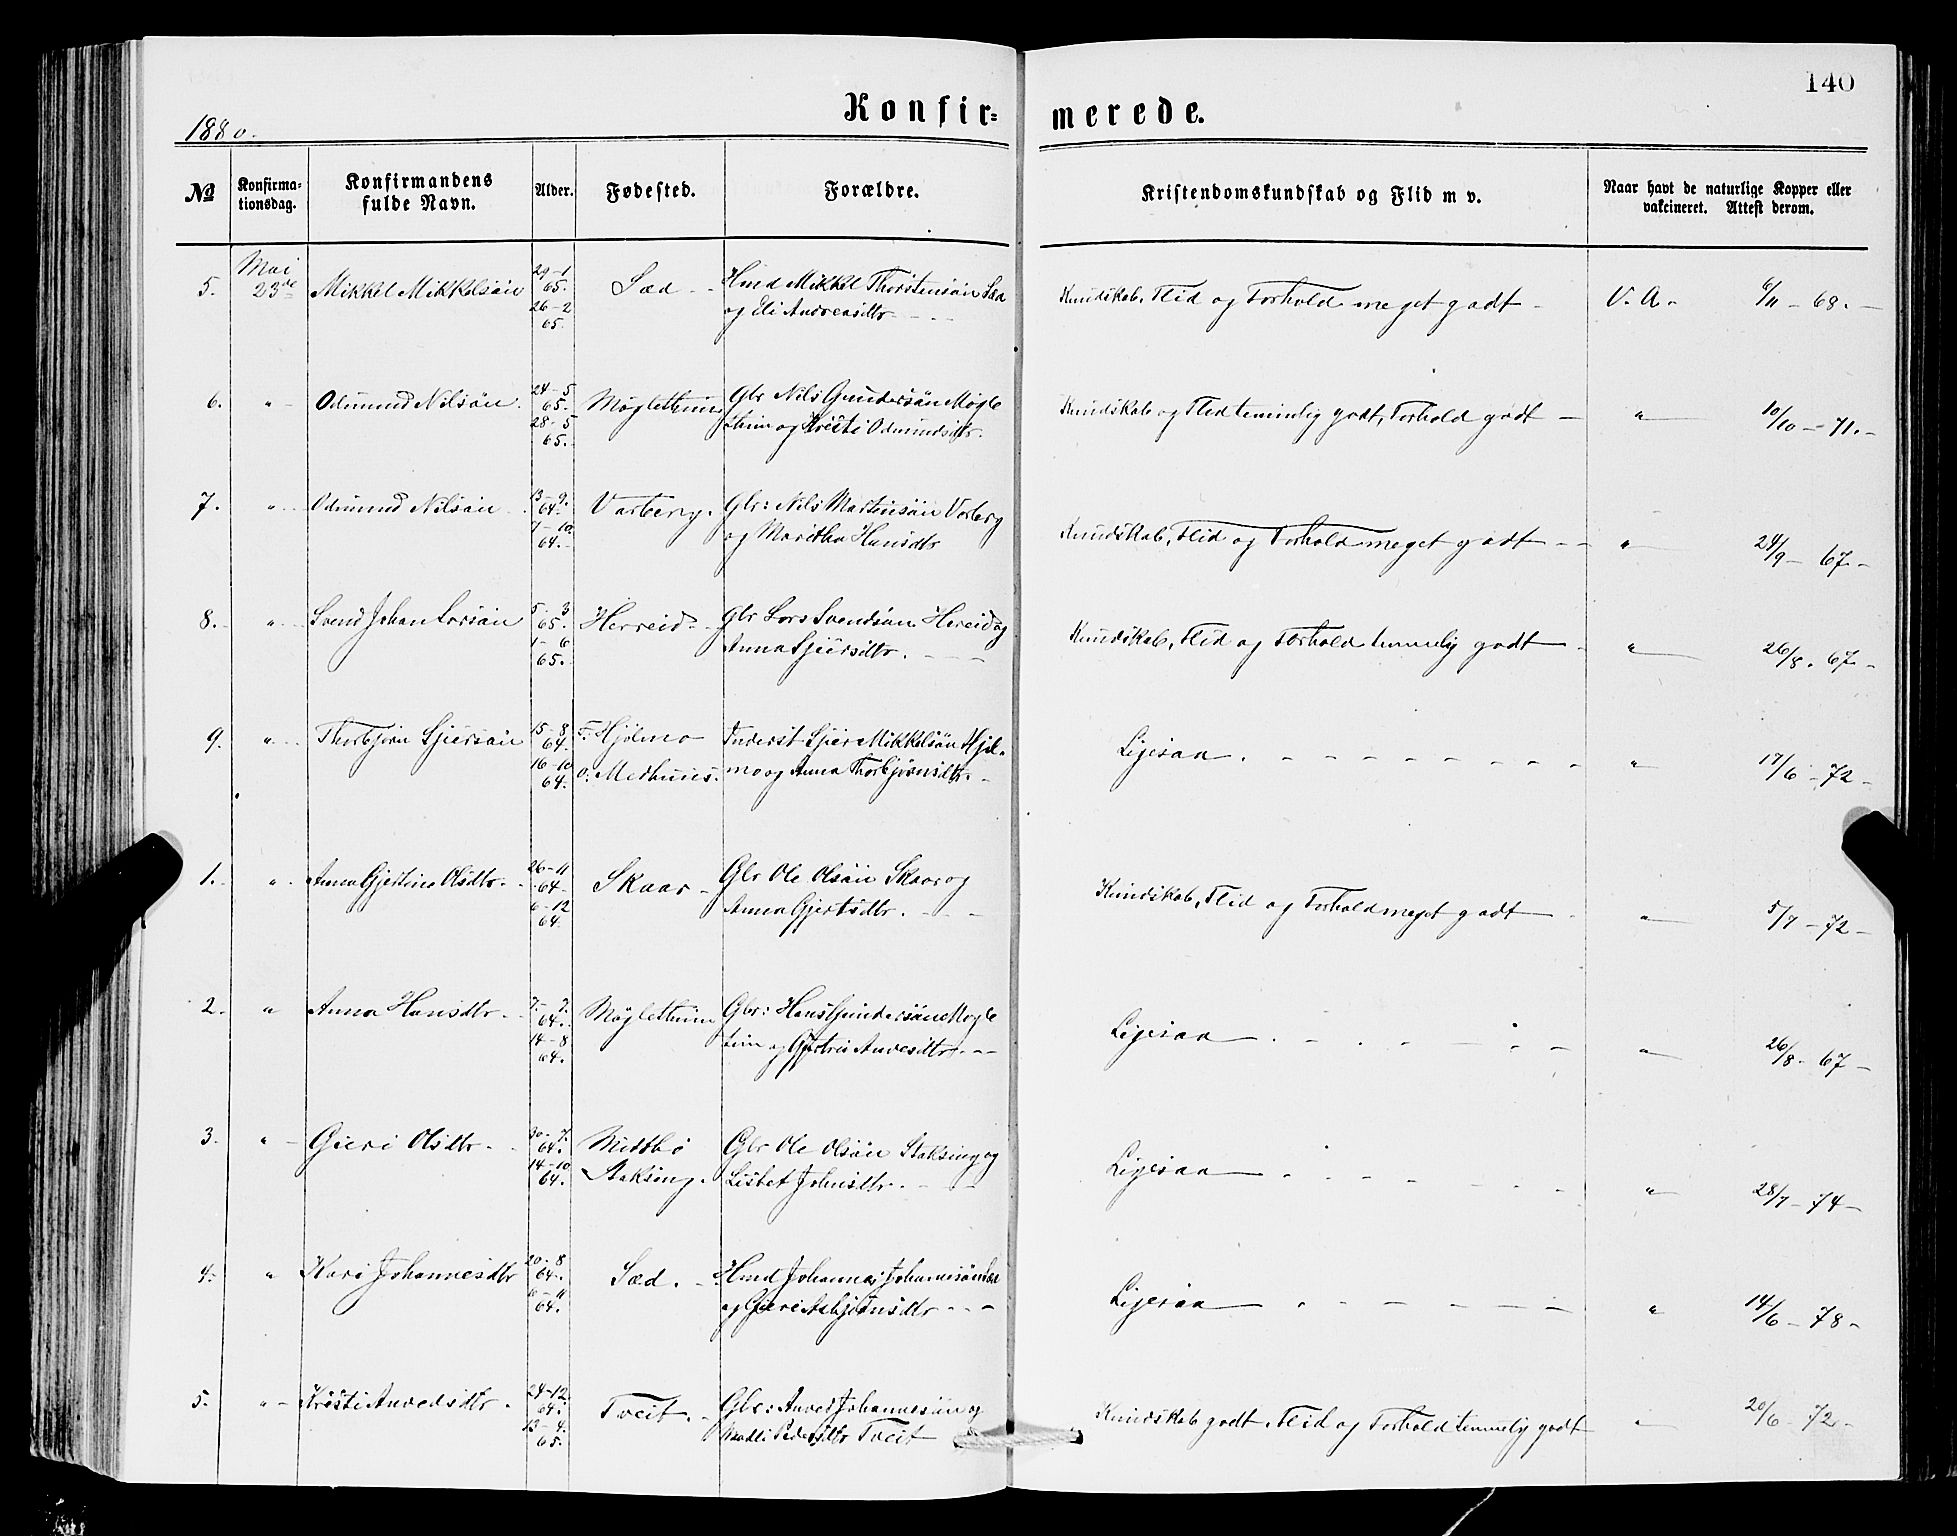 140
Konfir=
merede.
1880.
No
Konfirma=
tionsdag.
Konfirmandens
fulde Navn.
Alder.
Fødested.
Forældre.
Kristendomskundskab og Flid m v.
Naar havt de naturlige Kopper eller
vakcineret. Attest derom.
5. Mai 23de Mikkel Mikkelsön 29-1 65. 26-2 65. Sæd - Hmd Mikkel Thorstensön Sæd
og Eli Andreasdtr - - -
Kundskab, Flid og Forhold meget godt - V. A. 6/11 - 68. -
6. " Odmund Nilsön. 24-5 65. 28-5 65. Møglethun Gbr Nils Gundersön Mögle
thun og Kristi Odmundsdtr.
Kundskab og Flid temmelig godt, Forhold godt - " 10/10 - 71. -
7. " Odmund Nilsön 13-9. 64. 7-10. 64. Varberg. Gbr: Nils Martinsön Varberg
og Maritha Hansdtr
Kundskab, Flid og Forhold meget godt - - " 24/9 - 67. -
8. " Svend Johan Larsön 5-3 65. 1-6 65. Herreid - Gbr Lars Svendsön Hereid og
Anna Sjursdtr. - - -
Kundskab, Flid og Forhold temmelig godt - " 26/8. 67 -
9. " Thorbjörn Sjursön 15-8 64. 16-10 64. F. Hjölmo
o. Medhuus. Inderst Sjur Mikkelsön Hjöl-
mo og Anna Thorbjörnsdtr. -
Ligesaa. - - - - - - - - " 17/6 - 72 -
1. " Anna Gjertine Olsdtr. 26-11 64 6-12 64. Skaar - Gbr Ole Olsön Skaar og
Anna Gjertsdtr. - - -
Kundskab, Flid og Forhold meget godt - " 5/7 - 72 -
2. " Anna Hansdtr. 7-7. 64. 14-8 64. Møglethun Gbr: Hans Gundersön Mögle
tun og Gjertrui Anvesdtr. - -
Ligesaa - - - - - - " 26/8 - 67 -
3. " Guri Olsdtr. 30-7. 64. 14-10 64. Midtbö
Staksing. Gbr Ole Olsön Staksing og
Lisbet Johnsdtr. - - -
Ligesaa - - - - - - " 28/7 - 74 -
4. " Kari Johannesdtr 20-8 64. 64. Sæd. - Hmd Johannes Johannesön Sæd
og Guri Asbjörnsdtr - - -
Ligesaa - - - - - - " 14/6 - 78 -
5. " Kristi Anvedsdtr. 24-12. 64. 13-4. 65. Tveit. - Gbr: Anved Johannesön og
Pedersdtr Tveit
Kundskab godt. Flid og Forhold temmelig godt " 20/6 - 72 -